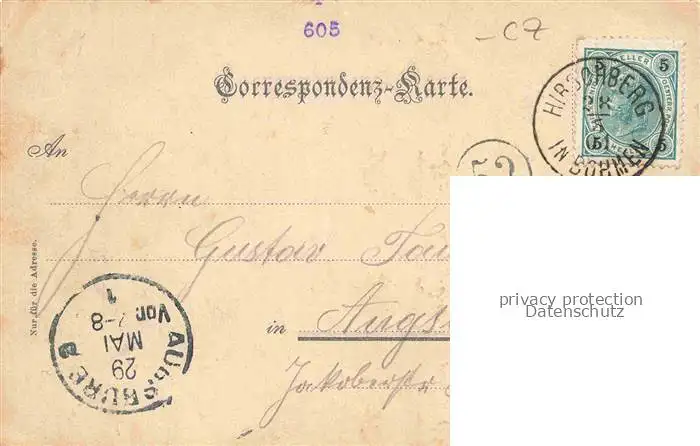 605
- CZ
5 HELLER 5
HIRSCHBERG
IN BÖHMEN
5 5
Correspondenz-Karte.
52
An
Herrn
Gustav
privacy protection
Datenschutz
Nur für die Adresse.
in Augs
Jakoberstr
AUGSBURG 2
29
MAI
Vor. 7-8
1